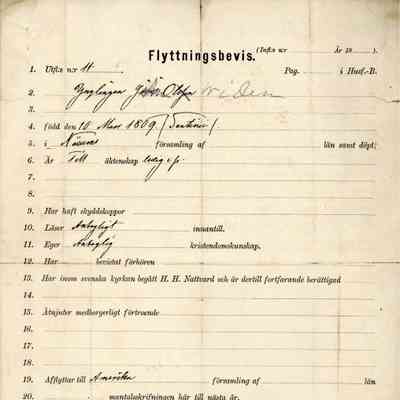 (Inft: n:r År 18 ).
Flyttningsbevis.
1. Utfl: n:r 4. Pag. i Husf.-B.
2. Ynglingen Olofsson Widen
3.
4. född den 10 Mars 1869
5. i församling af län samt döpt;
6. Är till äktenskap ledig
7.
8.
9. Har haft skyddskoppor
10. Läser Antagligt innantill.
11. Eger Antaglig kristendomskunskap.
12. Har bevistat förhören
13. Har inom svenska kyrkan begått H. H. Nattvard och är dertill fortfarande berättigad
14.
15. Åtnjuter medborgerligt förtroende
16.
17.
18.
19. Afflyttar till Amerika församling af län
20. mantalsskrifningen här till nästa år.